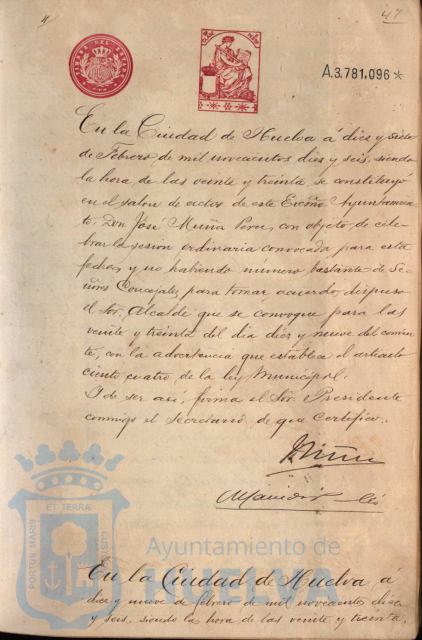 47
TIMBRE DEL ESTADO
A.3.781,096 *
En la Ciudad de Huelva á diez y siete
de Febrero de mil novecientos diez y seis, siendo
la hora de las veinte y treinta se constituyó
en el salon de actos de este Excmo Ayuntamien-
to, Don José Muñiz Perez, con objeto de cele-
brar la sesión ordinaria convocada para esta
fecha, y no habiendo numero bastante de Se-
ñores Concejales para tomar acuerdo, dispuso
el Sor. Alcalde que se convoque para las
veinte y treinta del dia diez y nueve del corrien-
te, con la advertencia que establece el articulo
ciento cuatro de la ley Municipal.
Y de ser asi, firma el Sor. Presidente
conmigo el Secretario, de que certifico.
PORTUS MARIS ET TERRÆ CUSTODIA
Ayuntamiento de
HUELVA
En la Ciudad de Huelva á
diez y nueve de febrero de mil novecientos diez
y seis, siendo la hora de las veinte y treinta,